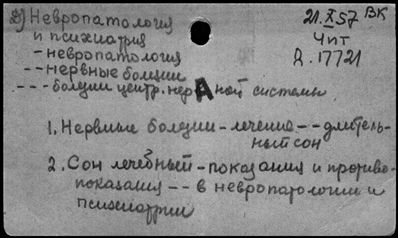 в) Невропатология
и психиатрия
- невропатология
-- нервные болезни
--- болезни центр. нервной системы
21.X 57 ВК
Чпт
Д. 17721
1. Нервные болезни - лечение -- длитель-
ный сон
2. Сон лечебный - показания и противо-
показания -- в невропатологии и
психиатрии